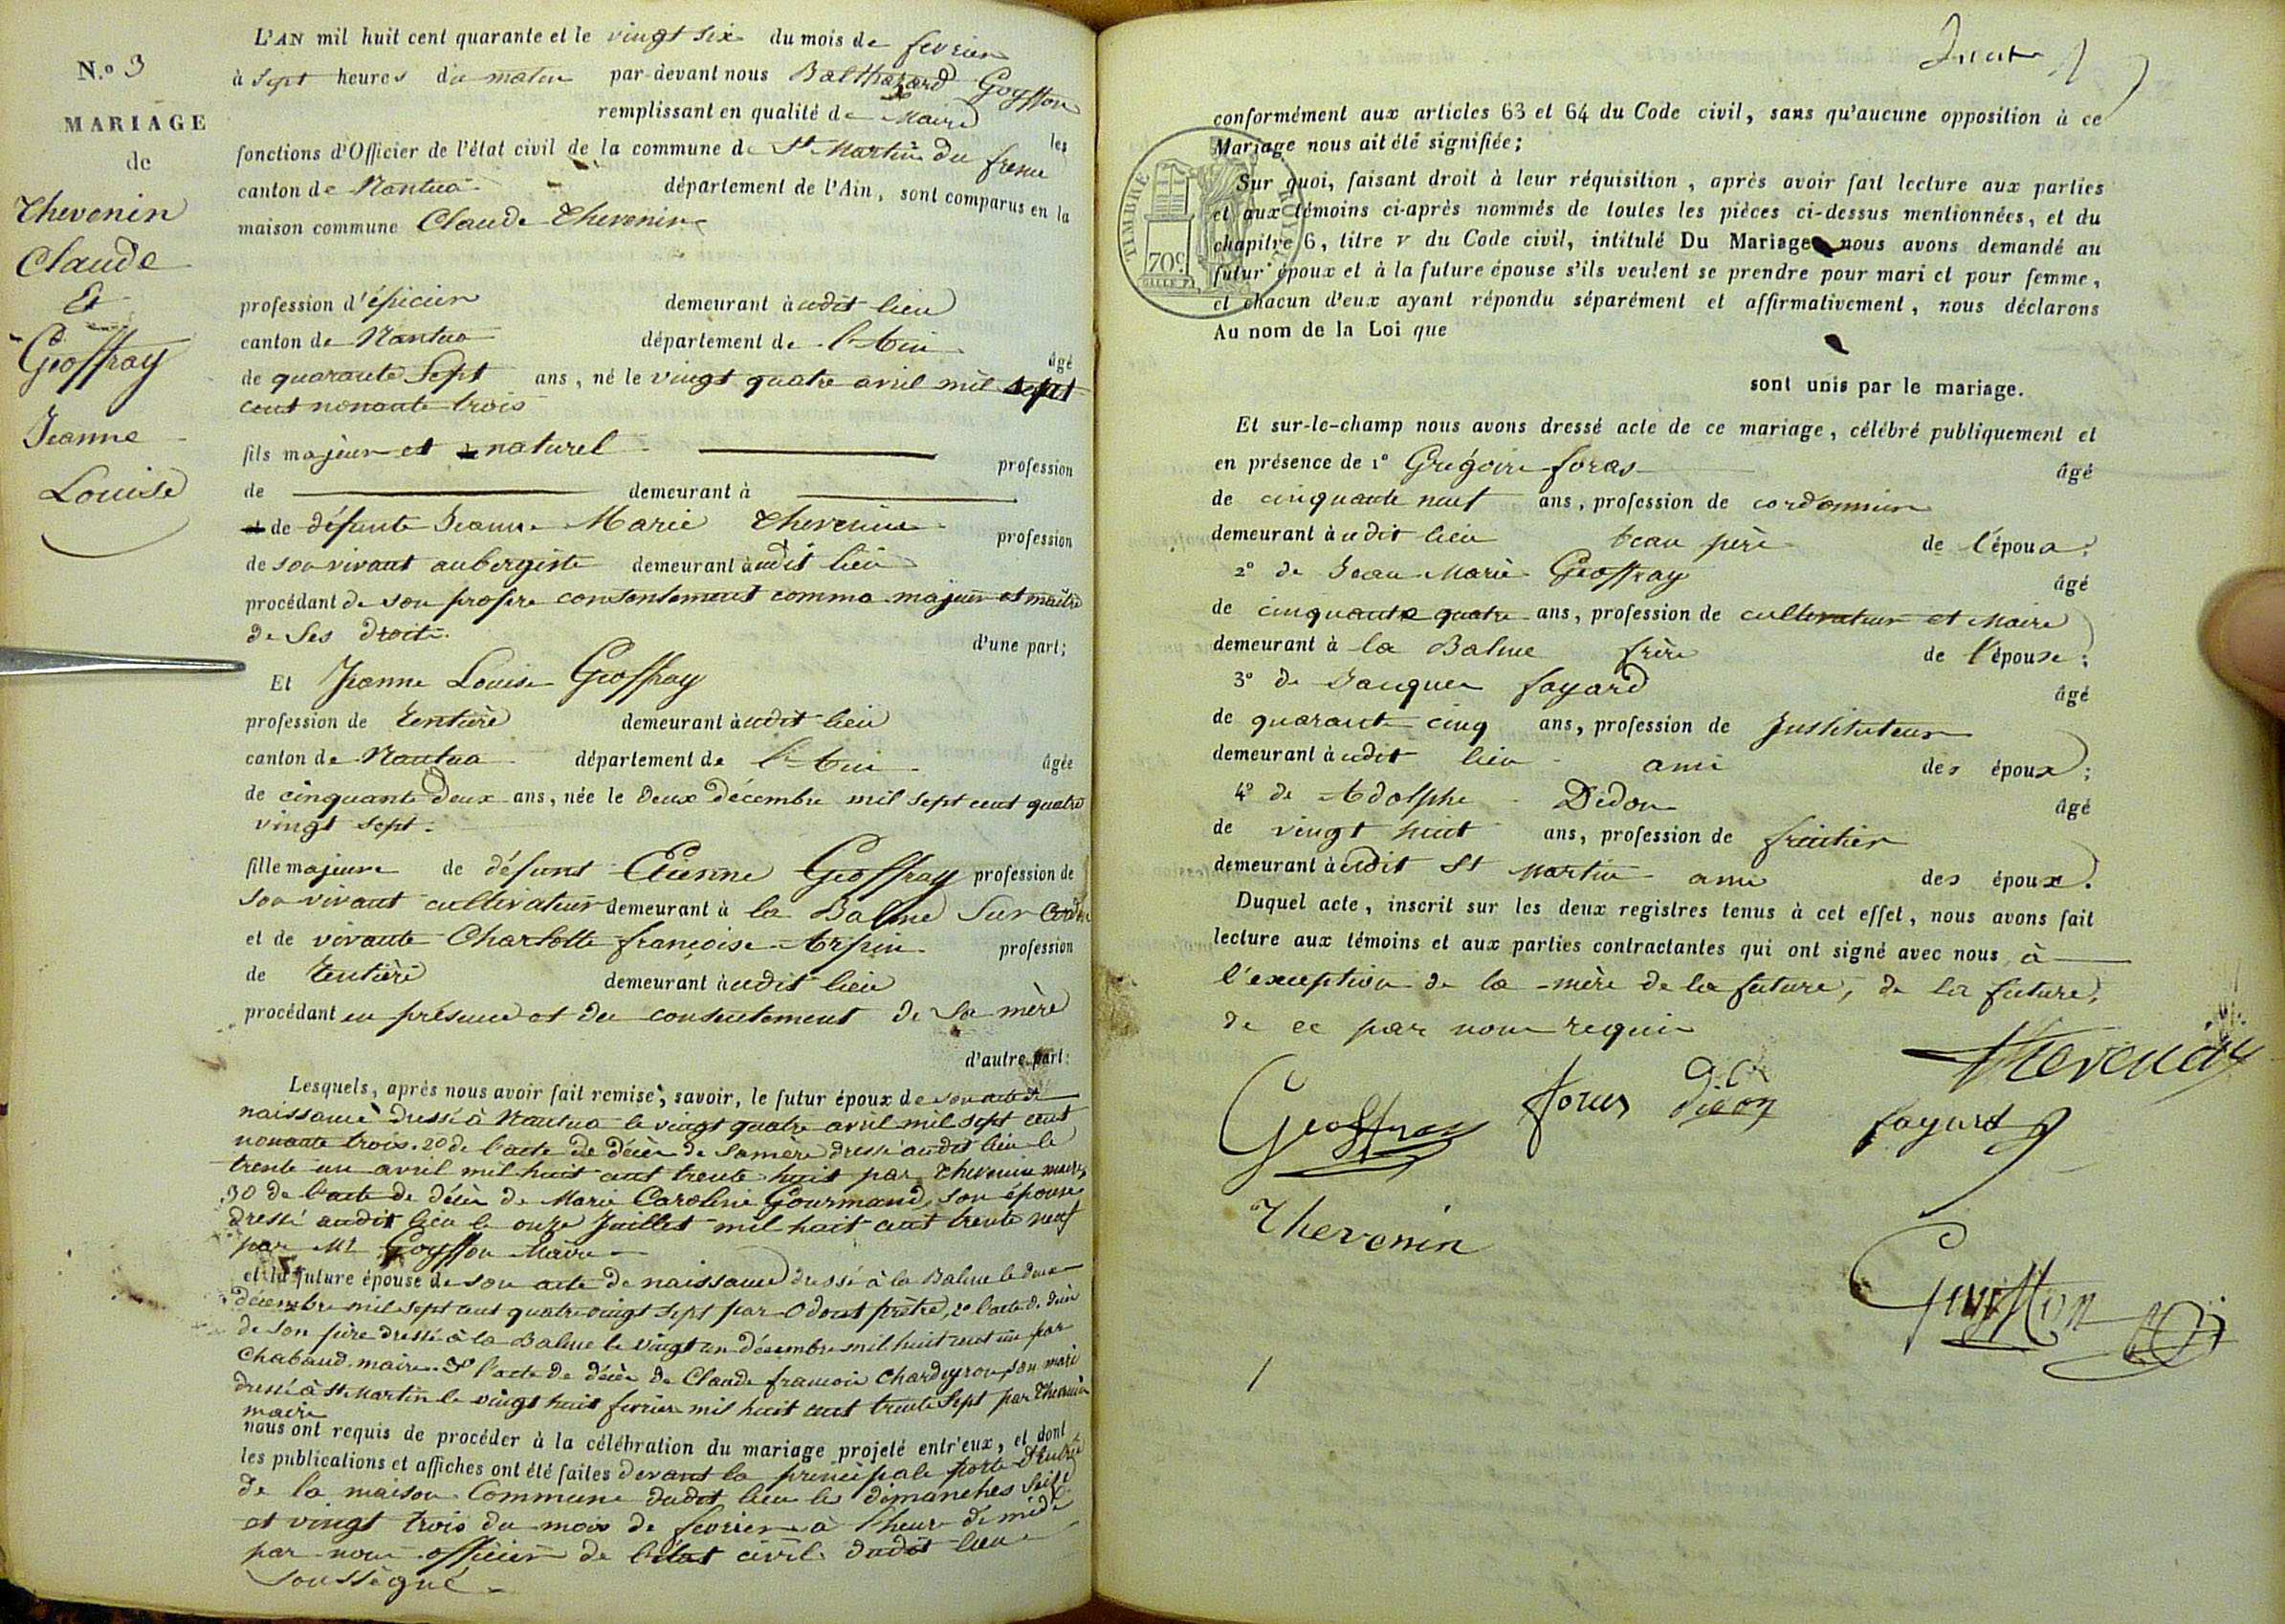 L'AN mil huit cent quarante et le vingt six du mois de fevrier
N.º 3
à sept heures du matin par-devant nous Balthazard Goyffon
MARIAGE
remplissant en qualité de Maire les
de
fonctions d'Officier de l'état civil de la commune de St Martin du fresne
canton de Nantua département de l'Ain, sont comparus en la
Thevenin
maison commune Claude Thevenin
Claude
Et
profession d'épicier demeurant audit lieu
Geoffray
canton de Nantua département de l'Ain âgé
de quarante Sept ans, né le vingt quatre avril mil sept
cent nonante trois
Jeanne
fils majeur et naturel profession
Louise
de demeurant à
et de défunte Jeanne Marie Thevenin profession
de son vivant aubergiste demeurant audit lieu
procédant de son propre consentement comme majeur et maitre
de ses droits. d'une part;
Et Jeanne Louise Geoffray
profession de rentière demeurant audit lieu
canton de Nantua département de l'Ain âgée
de cinquante deux ans, née le deux décembre mil sept cent quatre
vingt sept.
fille majeure de défunt Etienne Geoffray profession de
son vivant cultivateur demeurant à la Balme sur
et de vivante Charlotte françoise Arpin profession
de rentière demeurant audit lieu
procédant en présence et du consentement de sa mère
d'autre part:
Lesquels, après nous avoir fait remise, savoir, le futur époux de son acte de
naissance dressé à Nantua le vingt quatre avril mil sept cent
nonante trois. 2º de l'acte de décès de sa mère dressé audit lieu le
trente un avril mil huit cent trente huit par Thevenin maire,
3º de l'acte de décès de Marie Caroline Gourmand, son épouse
dressé audit lieu le onze Juillet mil huit cent trente neuf
par Mr Goyffon Maire
et la future épouse de son acte de naissance dressé à la Balme le deux
décembre mil sept cent quatre vingt sept par Odout prêtre, 2º l'acte de décès
de son père dressé à la Balme le vingt un décembre mil huit cent un par
Chabaud maire. 3º l'acte de décès de Claude francois Chardeyron, son mari
dressé à St Martin le vingt huit fevrier mil huit cent trente sept par Thevenin
maire
nous ont requis de procéder à la célébration du mariage projeté entr'eux, et dont
les publications et affiches ont été faites devant la principale porte d'entrée
de la maison Commune dudit lieu les dimanches seize
et vingt trois du mois de fevrier à l'heure de midi
par nous officier de l'état civil dudit lieu
soussigné
conformément aux articles 63 et 64 du Code civil, sans qu'aucune opposition à ce
Mariage nous ait été signifiée;
TIMBRE ROYAL
70c
Sur quoi, faisant droit à leur réquisition, après avoir fait lecture aux parties
et aux témoins ci-après nommés de toutes les pièces ci-dessus mentionnées, et du
chapitre 6, titre v du Code civil, intitulé Du Mariage nous avons demandé au
futur époux et à la future épouse s'ils veulent se prendre pour mari et pour femme,
et chacun d'eux ayant répondu séparément et affirmativement, nous déclarons
Au nom de la Loi que
sont unis par le mariage.
Et sur-le-champ nous avons dressé acte de ce mariage, célébré publiquement et
en présence de 1º Grégoire foras âgé
de cinquante neuf ans, profession de cordonnier
demeurant audit lieu beau père de l'époux;
2º de Jean Marie Geoffray âgé
de cinquante quatre ans, profession de cultivateur et Maire
demeurant à la Balme frère de l'épouse;
3º de Jacques fayard âgé
de quarante cinq ans, profession de Instituteur
demeurant audit lieu ami des époux;
4º de Adolphe Didon âgé
de vingt huit ans, profession de fruitier
demeurant audit St Martin ami des époux.
Duquel acte, inscrit sur les deux registres tenus à cet effet, nous avons fait
lecture aux témoins et aux parties contractantes qui ont signé avec nous, à
l'exception de la mère de la future, de la future,
de ce par nous requis
Thevenin
Geoffray foras didon fayard
Thevenin
Goyffon